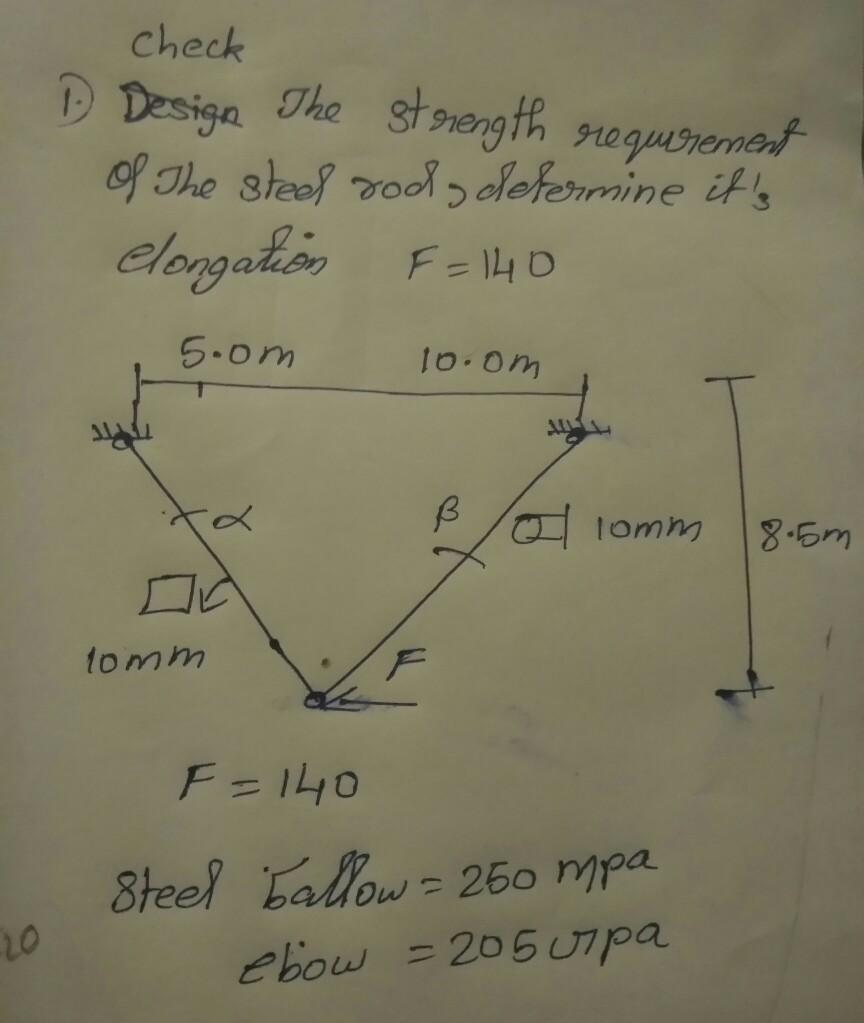 check
1.) Design The strength requirement
of The steel rod, determine it's
elongation F = 140
5.0m 10.0m
α β 10mm 8.5m
10mm F
F = 140
Steel = 250 mpa
20 = 205